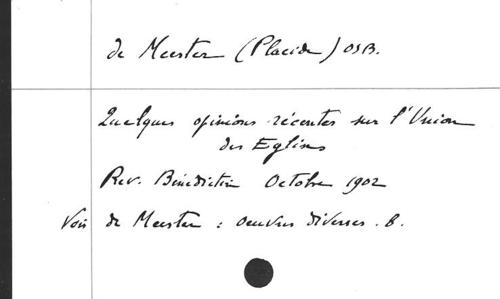 de Meester (Placide) OSB.
Quelques opinions récentes sur l'Union
des Eglises
Rev. Bénédictine Octobre 1902
Voir de Meester : oeuvres diverses. B.